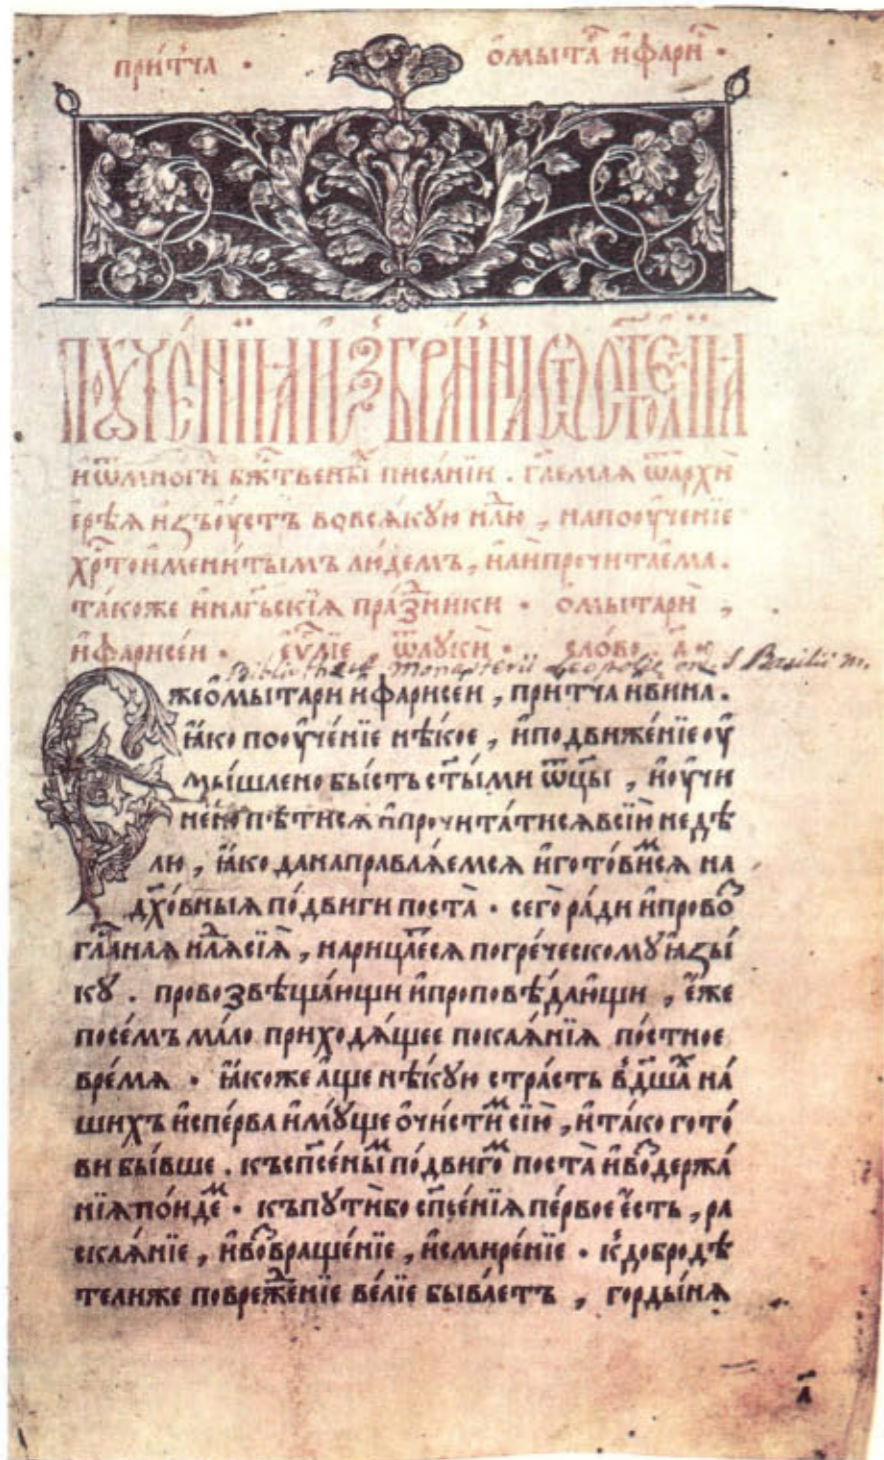 при́тча • ѡ҆мыта̑ и҆фари̑ •
поуче́нїѧ и҆збра́ннаѧ ѿст҃го є҆ѵⷢ҇лїѧ
и҆ѿмно́ги бж҃твены̑ писа́нїи . гл҃емаѧ ѿархи
ере́ѧ и҆зъоу҆стъ вовсѧ́кую нлⷣю , напооуче́нїе
хрⷭ҇тоимени́тымъ лю́демъ , и҆лѝпрочита́ема .
та́коже и҆нагⷭ҇ьскїѧ пра́зⷣники • ѡ҆мытарѝ ,
и҆фарисе́и • є҆ѵⷢ҇лїе , ѿлукѝ • сло́во , а҃ •
Bibliothecæ Monasterii Leopol. S Basilii m.
жео҆мытари и҆фарисеи , при́тча ивина̀ .
ꙗ҆́ко пооуче́нїе нѣ́кое , и҆подвиже́нїе оу҆
мы́шлено бы́сть ст҃ы́ми ѿц҃ы , и҆оу҆чи
нено̀ пѣ́тисѧ и҆прочита́тисѧ всїю̀ недѣ́
лю , ꙗ҆́ко данаправлѧ́емсѧ и҆гото́вимⷨсѧ на
дх҃о́вныѧ по́двиги поста̀ • сего̀ ра́ди и҆провоⷥ
гла́снаѧ нлⷣѧ сїѧ̀ , нарица́етсѧ погре́ческому ꙗ҆зы́
ку . провозвѣща́ющи и҆проповѣ́дающи , є҆́же
посе́мъ ма́ло приходѧ́щее покаѧ́нїѧ по́стное
вре́мѧ • ꙗ҆́коже а҆́ще нѣ́кую стра́сть в̾дш҃аⷯ на́
шихъ и҆спе́рва и҆му́ще ѻ҆чи́стимⷨ сїю̀ , и҆та́ко гото́
ви бы́вше . къспⷭ҇е́ныⷨ по́двигоⷨ поста̀ и҆воⷥдержа́
нїѧ по́идеⷨ • къпутѝбо сп҃се́нїѧ пе́рвое є҆́сть , ра
скаѧ́нїе , и҆воⷥвраще́нїе , и҆смире́нїе • к̾доброд́ѣ
телиже поврежⷣе́нїе ве́лїе быва́етъ , горды́нѧ
а҃